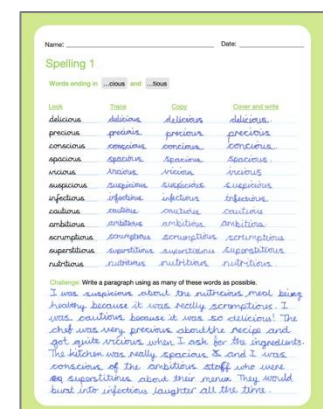 Name: Date:
Spelling 1
Words ending in ...cious and ...tious
Look Trace Copy Cover and write
delicious delicious delicious delicious.
precious precious precious precious
conscious conscious concious concious.
spacious spacious spacious spacious.
vicious vicious vicious vicious
suspicious suspicious suspicious suspicious
infectious infectious infectious infectious.
cautious cautious cautious cautious
ambitious ambitious ambitious ambitious.
scrumptious scrumptious scrumptious scrumptious
superstitious superstitious superstitious superstitious.
nutritious nutritious nutritious nutritious.
Challenge: Write a paragraph using as many of these words as possible.
I was suspicious about the nutricious meal being
healthy because it was really scrumptious. I
was cautious because it was so delicious! The
chef was very precious about the recipe and
got quite vicious when I ask for the ingredients.
The kitchen was really spacious & and I was
conscious of the ambitious staff who were
superstitious about their menu. They would
burst into infectious laughter all the time.